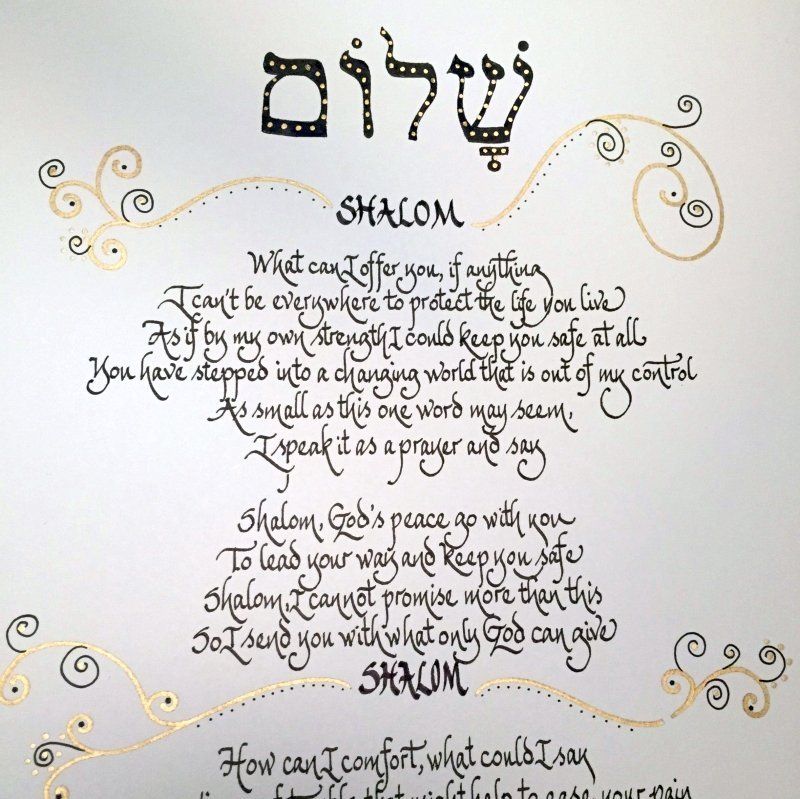 שָׁלוֹם
SHALOM
What can I offer you, if anything
I can't be everywhere to protect the life you live
As if by my own strength I could keep you safe at all
You have stepped into a changing world that is out of my control
As small as this one word may seem,
I speak it as a prayer and say
Shalom, God's peace go with you
To lead your way and keep you safe
Shalom, I cannot promise more than this
So I send you with what only God can give
SHALOM
How can I comfort, what could I say
that might help to ease your pain